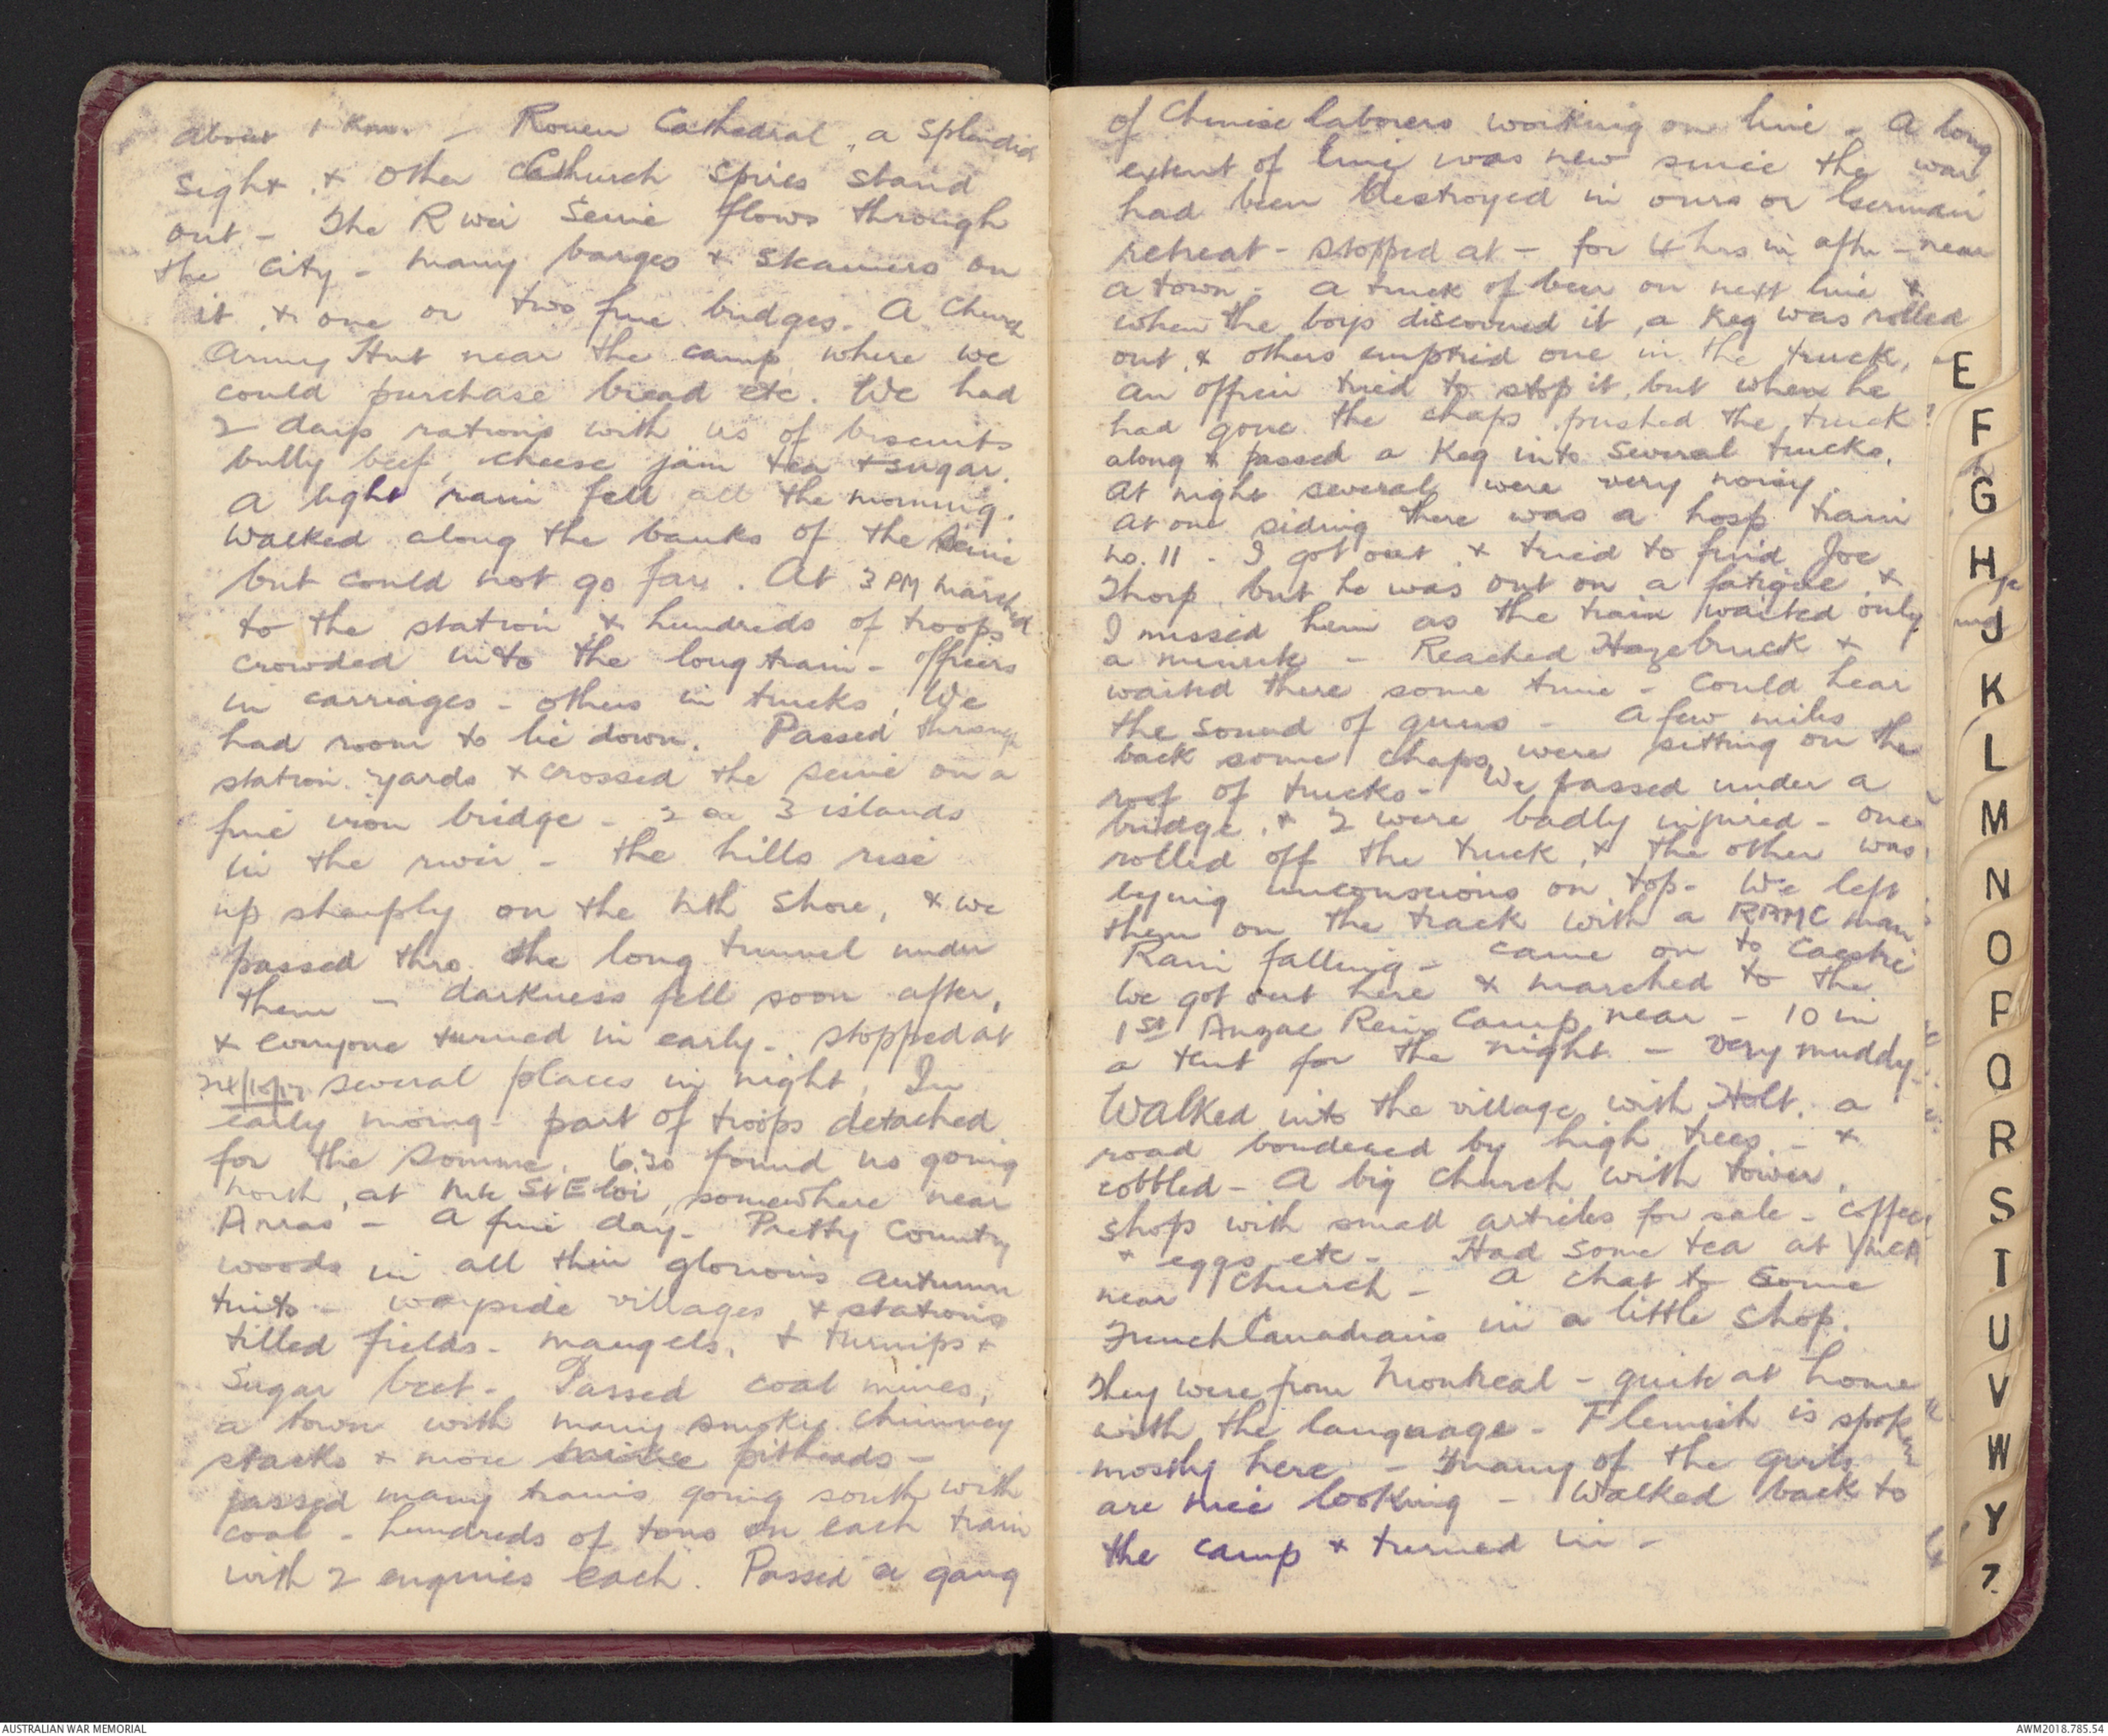 about 1 Km. - Rouen Cathedral, a splendid
sight, & other Church spires stand
out - The River Seine flows through
the city - many barges & steamers on
it, & one or two fine bridges. A Church
Army Hut near the camp where we
could purchase bread etc. We had
2 days rations with us of biscuits
bully beef, cheese jam tea & sugar.
A light rain fell all the morning.
Walked along the banks of the Seine
but could not go far. At 3 PM marched
to the station & hundreds of troops
crowded into the long train - officers
in carriages - others in trucks, We
had room to lie down. Passed through
station yards & crossed the Seine on a
fine iron bridge - 2 or 3 islands
in the river - the hills rise
up sharply on the Nth shore, & we
passed thro the long tunnel under
them - darkness fell soon after,
& everyone turned in early - stopped at
24/10/17 several places in night, In
early morng - part of troops detached
for the Somme. 6.30 found us going
north, at Mt St Eloi, somewhere near
Arras - A fine day - Pretty County
woods in all their glorious autumn
tints - wayside villages & stations
tilled fields - mangels, & turnips &
Sugar beet - Passed coal mines,
a town with many smoky chimney
stacks & more pitheads -
passed many trains going south with
coal - hundreds of tons on each train
with 2 engines each. Passed a gang
of Chinese laborers working on line - A long
extent of line was new since the war
had been destroyed in ours or German
retreat - stopped at - for 4 hrs in aftn - near
a town - a truck of beer on next line &
when the boys discovered it, a keg was rolled
out, & others emptied one in the truck,
an officer tried to stop it, but when he
had gone the chaps pushed the truck
along & passed a Keg into several trucks.
At night several were very noisy.
At one siding there was a hosp train
no. 11 - I got out & tried to find Joe
Thorp, but he was out on a fatigue &
I missed him as the train waited only
a minute - Reached Hazebruck &
waited there some time - Could hear
the sound of guns - A few miles
back some chaps were sitting on the
roof of trucks - We passed under a
bridge, & 2 were badly injured - one
rolled off the truck, & the other was
lying unconscious on top - We left
them on the track with a RAMC man
Rain falling - came on to Caestre
We got out here & marched to the
1st Anzac Rein Camp near - 10 in
a tent for the night - very muddy -
Walked into the village with Holt, a
road bordered by high trees - &
cobbled - A big church with tower,
shops with small articles for sale - coffee
& eggs etc - Had some tea at YMCA
near Church - A chat to some
French Canadians in a little shop.
They were from Montreal - quite at home
with the language - Flemish is spoken
mostly here - Many of the girls
are nice looking - Walked back to
the camp & turned in -
E
F
G
H
J
K
L
M
N
O
P
Q
R
S
T
U
V
W
Y
Z
AUSTRALIAN WAR MEMORIAL
AWM2018.785.54